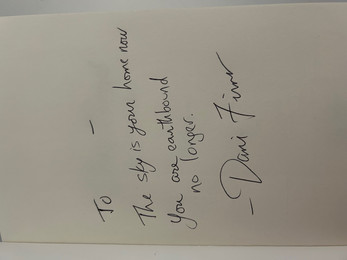 To —
The sky is your home now
You are earthbound
no longer.
— Dani Finn